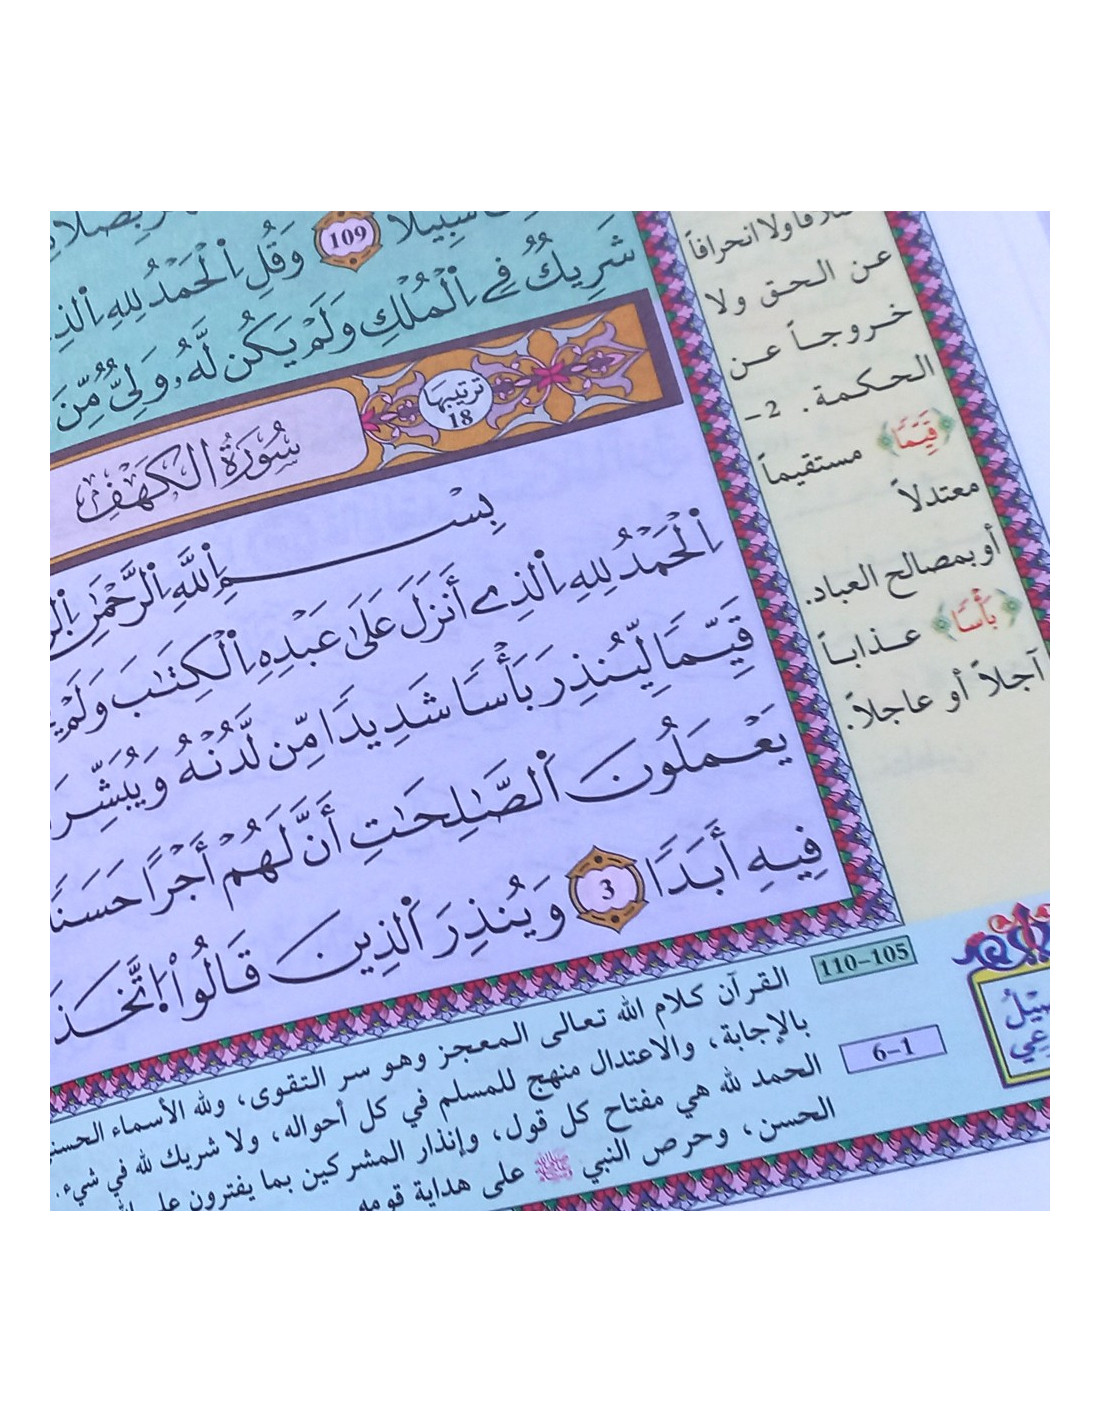 سَبِيلًا 109 وَقُلِ اِلْحَمْدُ لِلهِ اِلذِے
شَرِيكٌ فِے اِلْمُلْكِ وَلَمْ يَكُن لَّهُۥ وَلِيٌّ مِّنَ
سُورَةُ الكَهْفِ
ترتيبها
18
بِسْمِ اِللَّهِ اِلرَّحْمَٰنِ
اِلْحَمْدُ لِلهِ اِلذِے أَنزَلَ عَلَىٰ عَبْدِهِ اِلْكِتَٰبَ وَلَمْ
قَيِّمًا لِّيُنذِرَ بَأْسًا شَدِيدًا مِّن لَّدُنْهُ وَيُبَشِّرَ
يَعْمَلُونَ اَلصَّٰلِحَٰتِ أَنَّ لَهُمْ أَجْرًا حَسَنًا
فِيهِ أَبَدًا 3 وَيُنذِرَ اَلذِينَ قَالُوا۟ اُ۪تَّخَذَ
ولا انحرافاً
عن الحق ولا
خروجاً عن
الحكمة. 2-
﴿قَيِّمًا﴾ مستقيماً
معتدلاً
أو بمصالح العباد.
﴿بَأْسًا﴾ عذاباً
آجلاً أو عاجلاً.
110-105
القرآن كلام الله تعالى المعجز وهو سر التقوى، ولله الأسماء
بالإجابة، والاعتدال منهج للمسلم في كل أحواله، ولا شريك لله في شيء.
6-1
الحمد لله هي مفتاح كل قول، وإنذار المشركين بما يفترون
الحسن، وحرص النبي ﷺ على هداية قومه